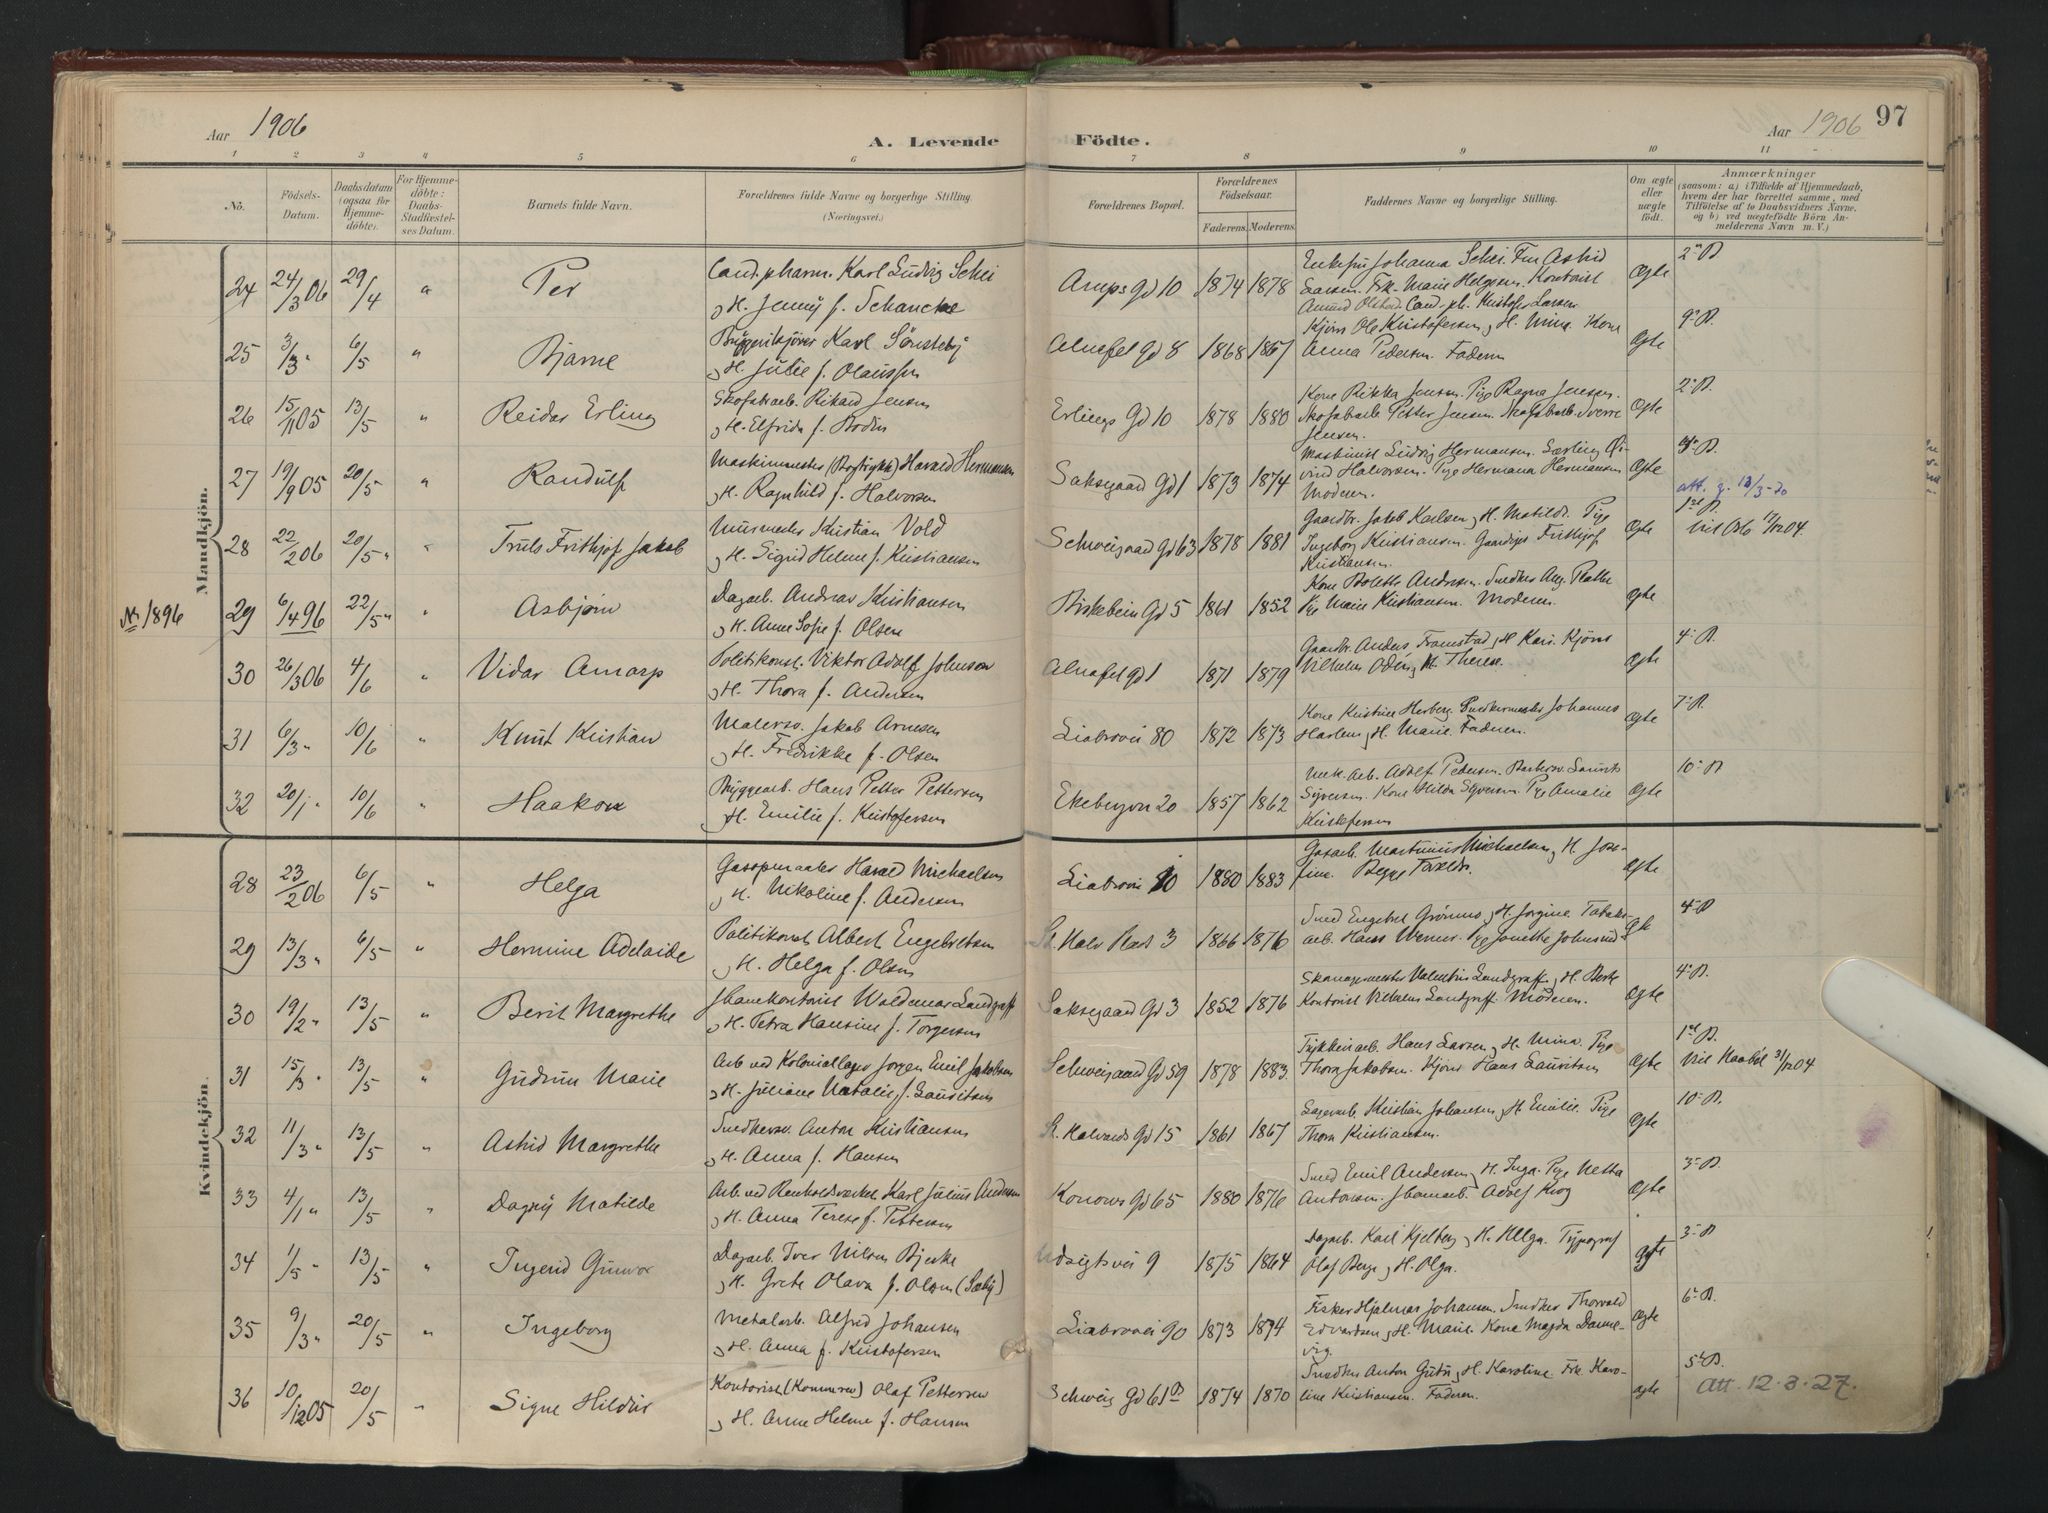 Aar 1906
A. Levende
Födte.
Aar 1906
97
1 2 3 4 5 6 7 8 9 10 11
No.
Födsels-Datum.
Daabsdatum (ogsaa for Hjemme-döbte).
For Hjemme-döbte: Daabs-Stadfæstel-ses Datum.
Barnets fulde Navn.
Forældrenes fulde Navne og borgerlige Stilling (Næringsvei.)
Forældrenes Bopæl.
Forældrenes Födselsaar.
Faderens. Moderens.
Faddernes Navne og borgerlige Stilling.
Om ægte eller uægte födt.
Anmærkninger
(saasom: a) i Tilfælde af Hjemmedaab, hvem der har forrettet samme, med Tilföielse af to Daabsvidners Navne, og b) ved uægtefödte Börn An-melderens Navn m. V.)
Mandkjön.
24 24/3 06 29/4 " Per
Cand. pharm. Karl Ludvig Schei
og H. Jenny f. Schancke
Arups Gd 10 1874 1878
Enkefru Johanna Schei. Fru Astrid
Larsen. Frk. Marie Helgesen. Kontorist
Amund Olstad. Cand. ph. Kristofer Larsen
Ægte 2-B
25 3/3 " 6/5 " Bjarne
Karl Sönsteby
og H. Julie f. Olaussen
Alnafet Gd 8 1868 1867
Kjörer Ole Kristofersen og H. Mina. Kone
Anna Pedersen. Faderen
Ægte 9-B.
26 15/11 05 13/5 " Reidar Erling
Skofabarb. Rikard Jensen
og H. Elfrida f. Bodin
Erlings Gd 10 1878 1880
Kone Rikka Jensen. Pige Ragna Jensen.
Skofabarb. Petter Jensen. Skofabarb. Sverre
Jensen.
Ægte 2-B.
27 19/9 05 20/5 " Randulf
Maskinmester (Bogtrykk) Harald Hermansen
og H. Ragnhild f. Halvorsen
Saksegaard Gd 1 1873 1874
Maskinist Ludvig Hermansen. Lærling Öi-
vind Halvorsen. Pige Hermana Hermansen
Moderen.
Ægte 4-B.
att. g. 13/3-20
28 22/2 06 20/5 " Truls Frithjof Jakob
Murmester Kristian Vold
og H. Sigrid Helene f. Kristiansen
Schweigaard Gd 63 1878 1881
Gaardbr. Jakob Karlsen og H. Matilde. Pige
Ingeborg Kristiansen. Gaardgut Frithjof
Kristiansen.
Ægte 1ste B.
Viet Oslo 17/12 04.
No 1896
29 6/4 96 22/5 " Asbjørn
Dagarb. Andreas Kristiansen
og H. Anne Sofie f. Olsen
Birkebein Gd 5 1861 1852
Kone Bolette Andresen. Snedker Aug. Plathe
Pige Marie Kristiansen. Moderen.
Ægte
30 26/3 06 4/6 " Vidar Amarp
Politikonst. Viktor Adolf Johnson
og H. Thora f. Andersen
Alnafet Gd 1 1871 1879
Gaardbr. Anders Framstad og H. Kari. Kjörer
Vilhelm Odén og H. Therese.
Ægte 4-B.
31 6/3 " 10/6 " Knut Kristian
Malersv. Jakob Arnesen
og H. Fredrikke f. Olsen
Liabrovei 80 1872 1873
Kone Kristine Herberg. Snedkermester Johannes
Harlem og H. Marie. Faderen.
Ægte 7-B.
32 20/1 " 10/6 " Haakon
Bryggearb. Hans Petter Pettersen
H. Emilie f. Kristofersen
Ekebergvn 20 1857 1862
Mek. Arb. Adolf Pedersen. Bakersv. Laurits
Syversen. Kone Hilda Syversen. Pige Amalie
Kristofersen
Ægte 10-B
Kvindekjön.
28 23/2 06 6/5 " Helga
Gasopmaaler Harald Michaelsen
og H. Nikoline f. Andersen
Liabrovei 10 1880 1883
Gasarb. Martinius Michaelsen og H. Jose-
fine. Begge Foreldr.
Ægte
29 13/3 " 6/5 " Hermine Adelaide
Politikonst. Albert Engebretsen
og H. Helga f. Olsen
St. Halv Plads 3 1866 1876
Smed Engebret Grönmo og H. Jorgine. Tobaks-
arb. Hans Werner. Pige Janette Johnsrud
Ægte 4-B
30 19/2 " 13/5 " Berit Margrethe
Jbanekontorist Waldemar Landgraff
og H. Petra Hansine f. Torgersen
Saksegaard Gd 3 1852 1876
Skomagermester Valentin Landgraff og H. Berte
Kontorist Vilhelm Landgraff. Moderen.
Ægte 4-B.
31 15/3 " 13/5 " Gudrun Marie
Arb. ved Koloniallager Jørgen Emil Jakobsen
og H. Juliane Natalie f. Lauritsen
Schweigaard Gd 59 1878 1883
Trykkeriarb. Hans Larsen og H. Mina. Pige
Thora Jakobsen. Kjörer Hans Lauritsen
Ægte 1ste B.
Viet Haaböl 31/12 04
32 11/3 " 13/5 " Astrid Margrethe
Snedkersv. Anton Kristiansen
og H. Anna f. Hansen
St. Halvards Gd 15 1861 1867
Lagerarb. Kristian Johansen og H. Emilie. Pige
Thora Kristiansen.
Ægte 10-B.
33 4/1 " 13/5 " Dagny Matilde
Arb. ved Renholdsverket Karl Julius Andersen
og H. Anna Terese f. Pettersen
Konows Gd 65 1880 1876
Smed Emil Andersen og H. Inga. Pige Netta
Antonsen. Jbanearb. Adolf Krog
Ægte 3-B.
34 1/5 " 13/5 " Ingerid Gunvor
Dagarb. Iver Nilsen Bjerke
og H. Grete Olava f. Olsen (Sæby)
Udsigtsvei 9 1875 1864
Dagarb. Karl Kjelberg og H. Helga. Typograf
Olaf Berge og H. Olga.
Ægte 3-B
35 9/3 " 20/5 " Ingeborg
Metalarb. Alfred Johansen
og H. Anna f. Kristofersen
Liabrovei 90 1873 1874
Fisker Hjalmar Johansen. Snedker Thorvald
Edvardsen og H. Marie. Kone Magda Danne-
vig.
Ægte 6-B.
36 10/12 05 20/5 " Signe Hildur
Kontorist (Kommunen) Olaf Pettersen
og H. Anne Helene f. Hansen
Schweig Gd 61B 1874 1870
Snedker Anton Gutu og H. Karoline. Frk. Karo-
line Kristiansen. Faderen.
Ægte 5-B.
Att. 12-3-27.